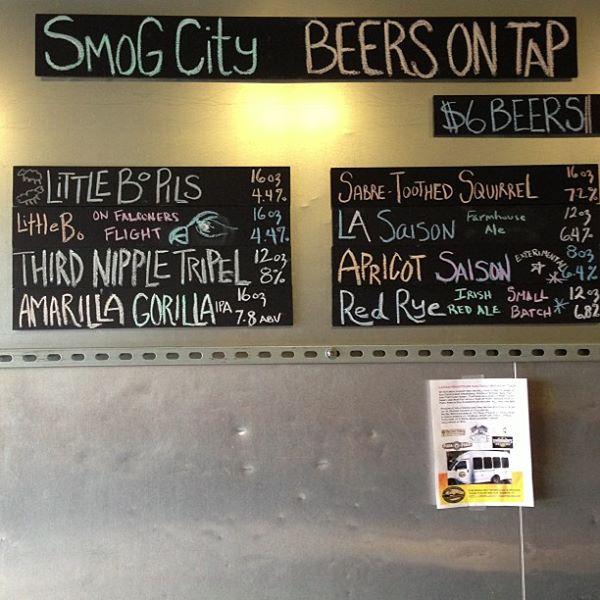 SMOG CITY BEERS ON TAP
$6 BEERS!!
LITTLE BO PILS 16oz 4.4%
Little Bo ON FALCONERS FLIGHT 16oz 4.4%
THIRD NIPPLE TRIPEL 12oz 8%
AMARILLA GORILLA IPA 16oz 7.8 ABV
SABRE-TOOTHED SQUIRREL 16oz 7.2%
LA SAISON Farmhouse Ale 12oz 6.4%
APRICOT SAISON EXPERIMENTAL 8oz 6.4%
Red Rye IRISH RED ALE SMALL BATCH 12oz 6.8%